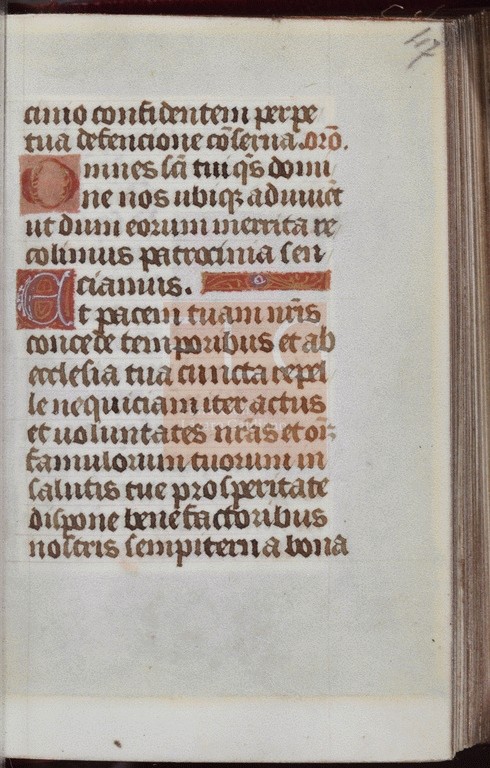 47
cinio confidentem perpe
tua defencione cōserua. orō.
Omnes scī tui q̄s domi
ne nos ubiqꝫ adiuuēt
ut dum eorum merita re
colimus patrocinia sen
ciamus.
Et pacem tuam nr̄is
concede temporibus et ab
ecclesia tua cuncta repel
le nequiciam iter actus
et uoluntates nr̄as et oīꝫ
famulorum tuorum in
salutis tue prosperitate
dispone benefactoribus
nostris sempiterna bona